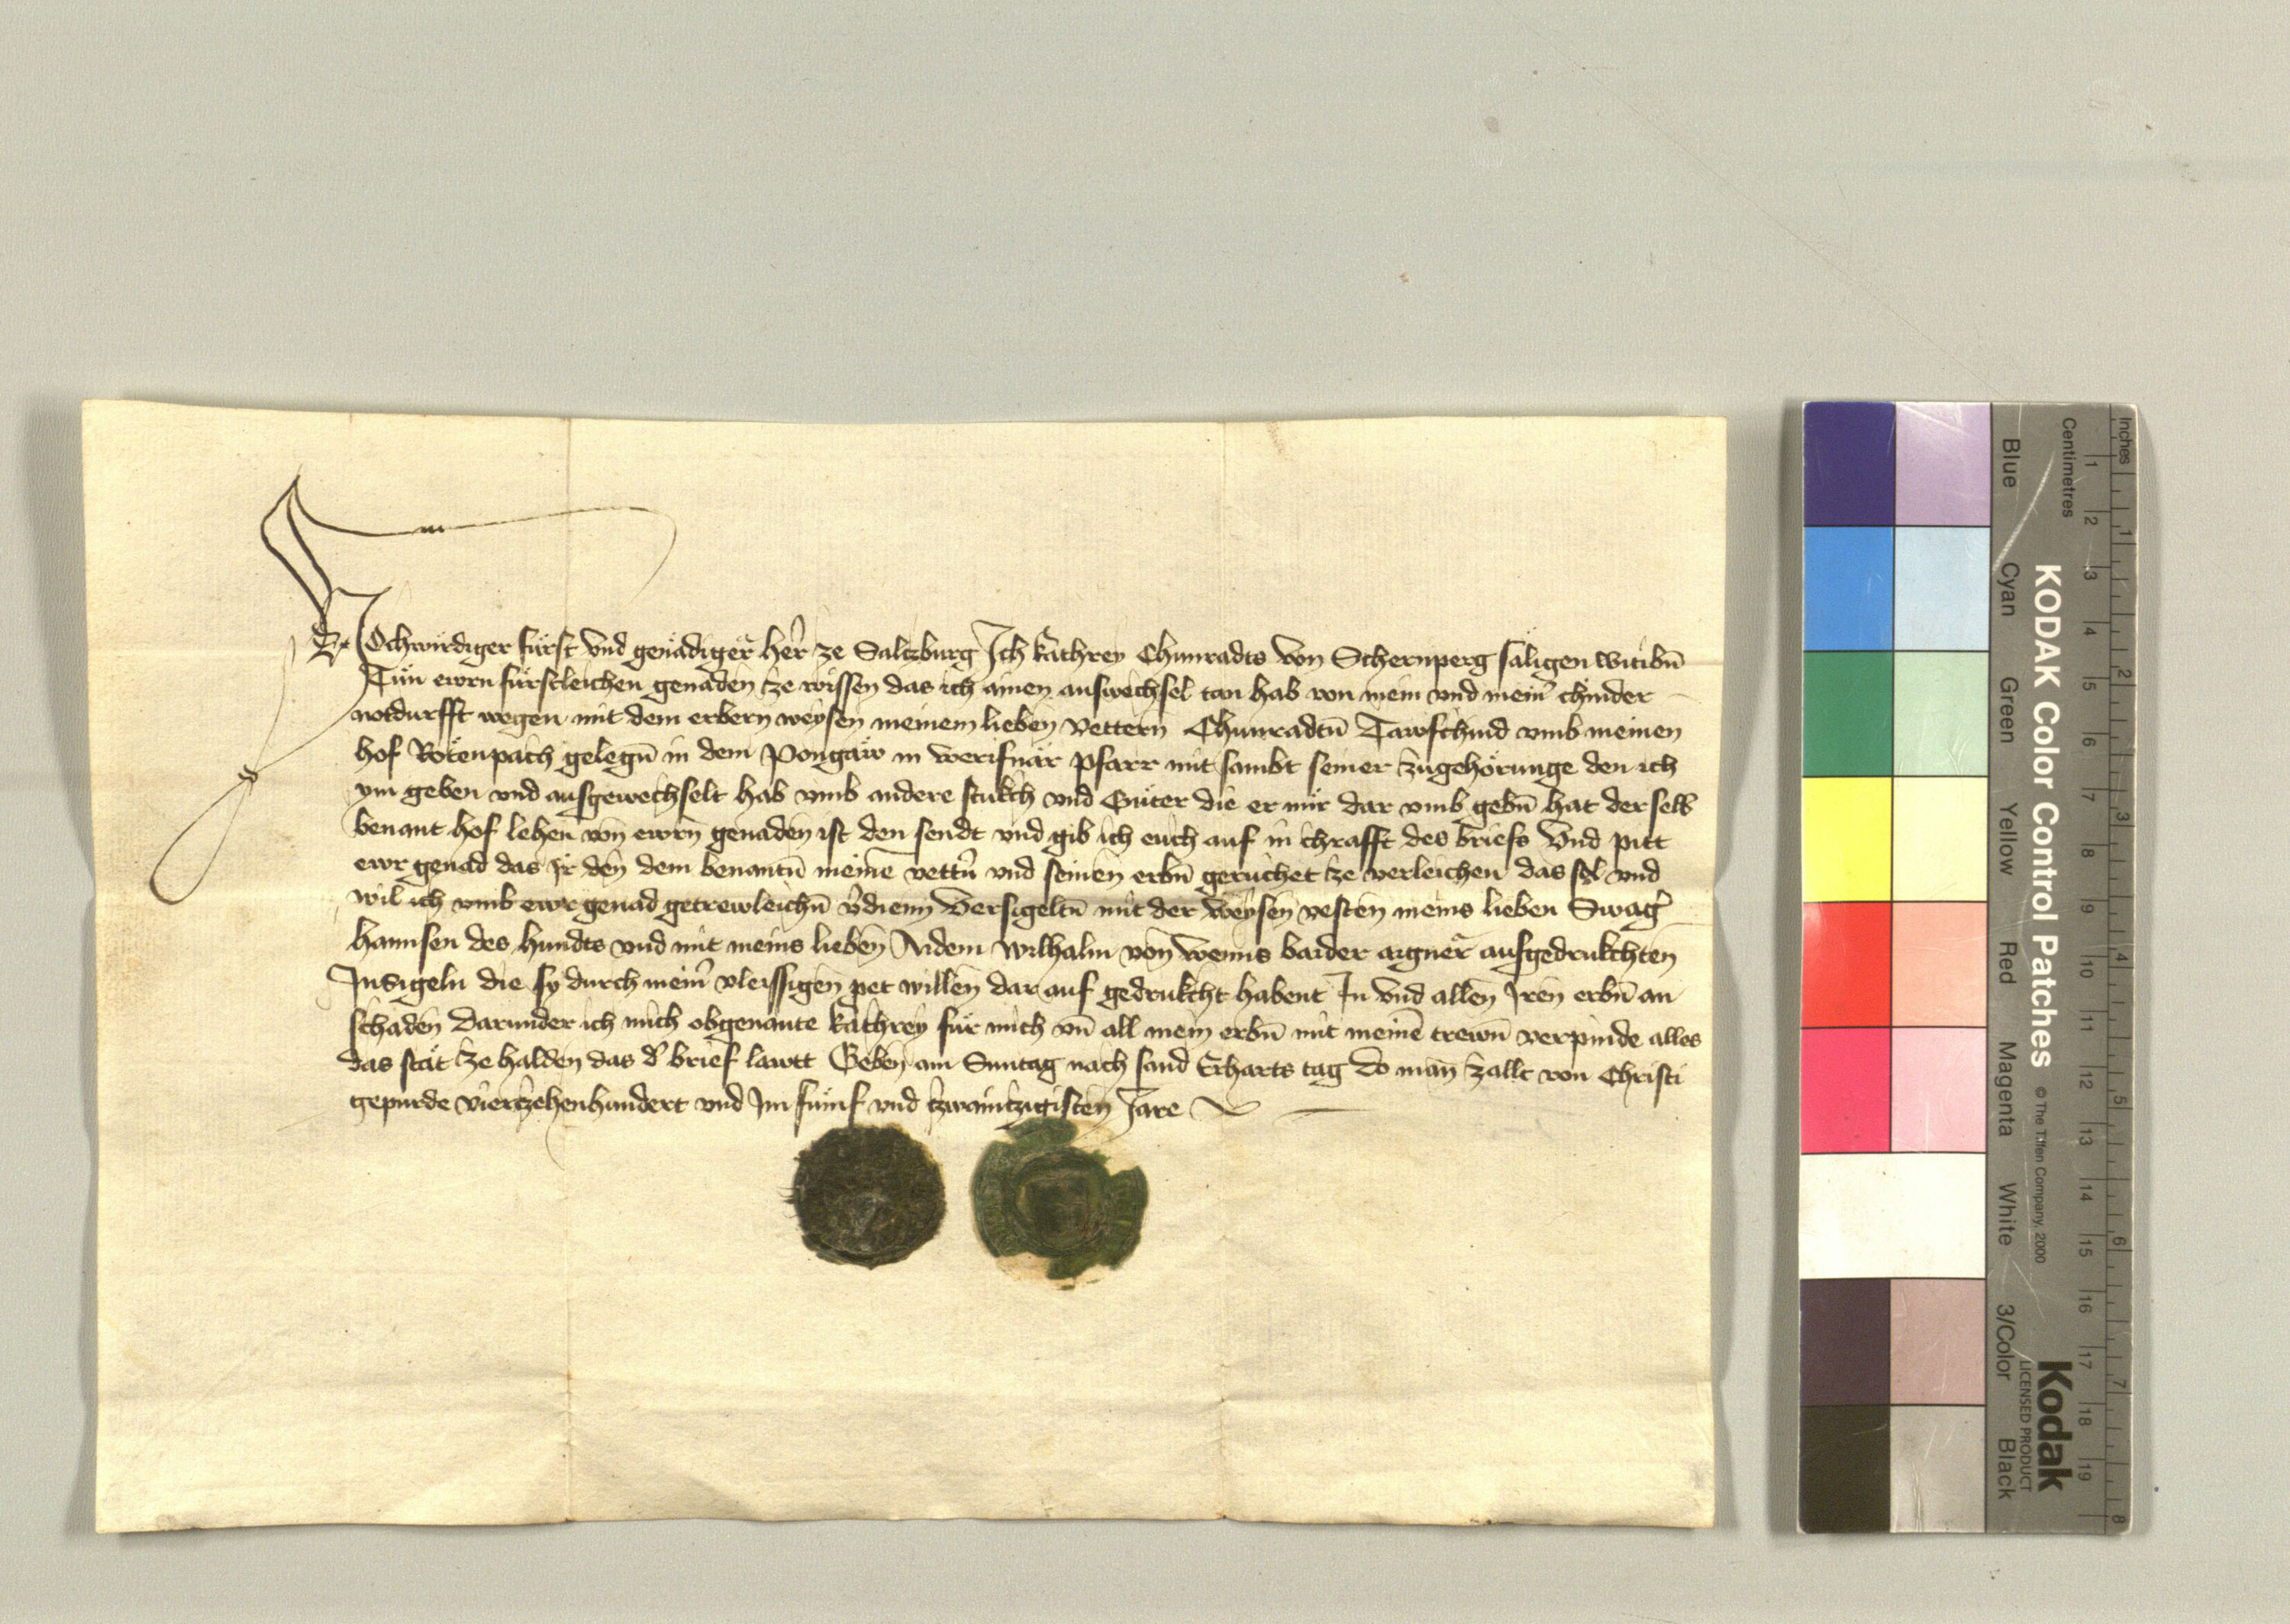 Hochwirdiger fürst vnd genädiger her̄ ze Salczburg Ich kathrey Chunradts von Schernperg säligen witibn̄
Tün ewrn fürstleichen genaden ze wissen das ich ainen auswechsel tan hab von mein vnd mein̄ chinder
notdurfft wegen mit dem erbern weysen meinem lieben vettern Chunradtn̄ Tawfchind vmb meinen
hof Rotenpach gelegn̄ in dem Pongäw in werifnär pfarr mit sambt seiner zugehörunge den ich
ym geben vnd ausgewechselt hab vmb andere stukch vnd Güter die er mir dar vmb gebn̄ hat der selb
benant hof lehen von ewrn genaden ist den sendt vnd gib ich euch auf in chrafft des briefs Vnd pitt
ewr genad das Ir den dem benantn̄ meinē vettn̄ vnd seinen erbn̄ geruchet ze verleichen das sol vnd
wil ich vmb ewr genad getrewleichn̄ v̄dienn Versigeltn̄ mit der weysen vesten meins lieben Swaḡ
hannsen des hundts vnd mit meins lieben Aidem wilhalm von wenns baider aigner aufgedrukchten
Insigeln die sy durch mein̄ vleissigen pet willen dar auf gedrukcht habent In vnd allen Iren erbn̄ an
schaden Darunder ich mich obgenante kathrey für mich vn̄ all mein erbn̄ mit meinē trewn̄ verpinde alles
das stät ze halden das d̄ brief lawtt Geben am Suntag nach sand Erharts tag do man zallt von Christi
gepurde vierczehenhundert vnd Im fünf vnd czwainczigisten Jare
Inches
Centimetres
1 2 3 4 5 6 7 8 9 10 11 12 13 14 15 16 17 18 19
1 2 3 4 5 6 7 8
KODAK Color Control Patches
© The Tiffen Company, 2000
Kodak
LICENSED PRODUCT
Blue
Cyan
Green
Yellow
Red
Magenta
White
3/Color
Black